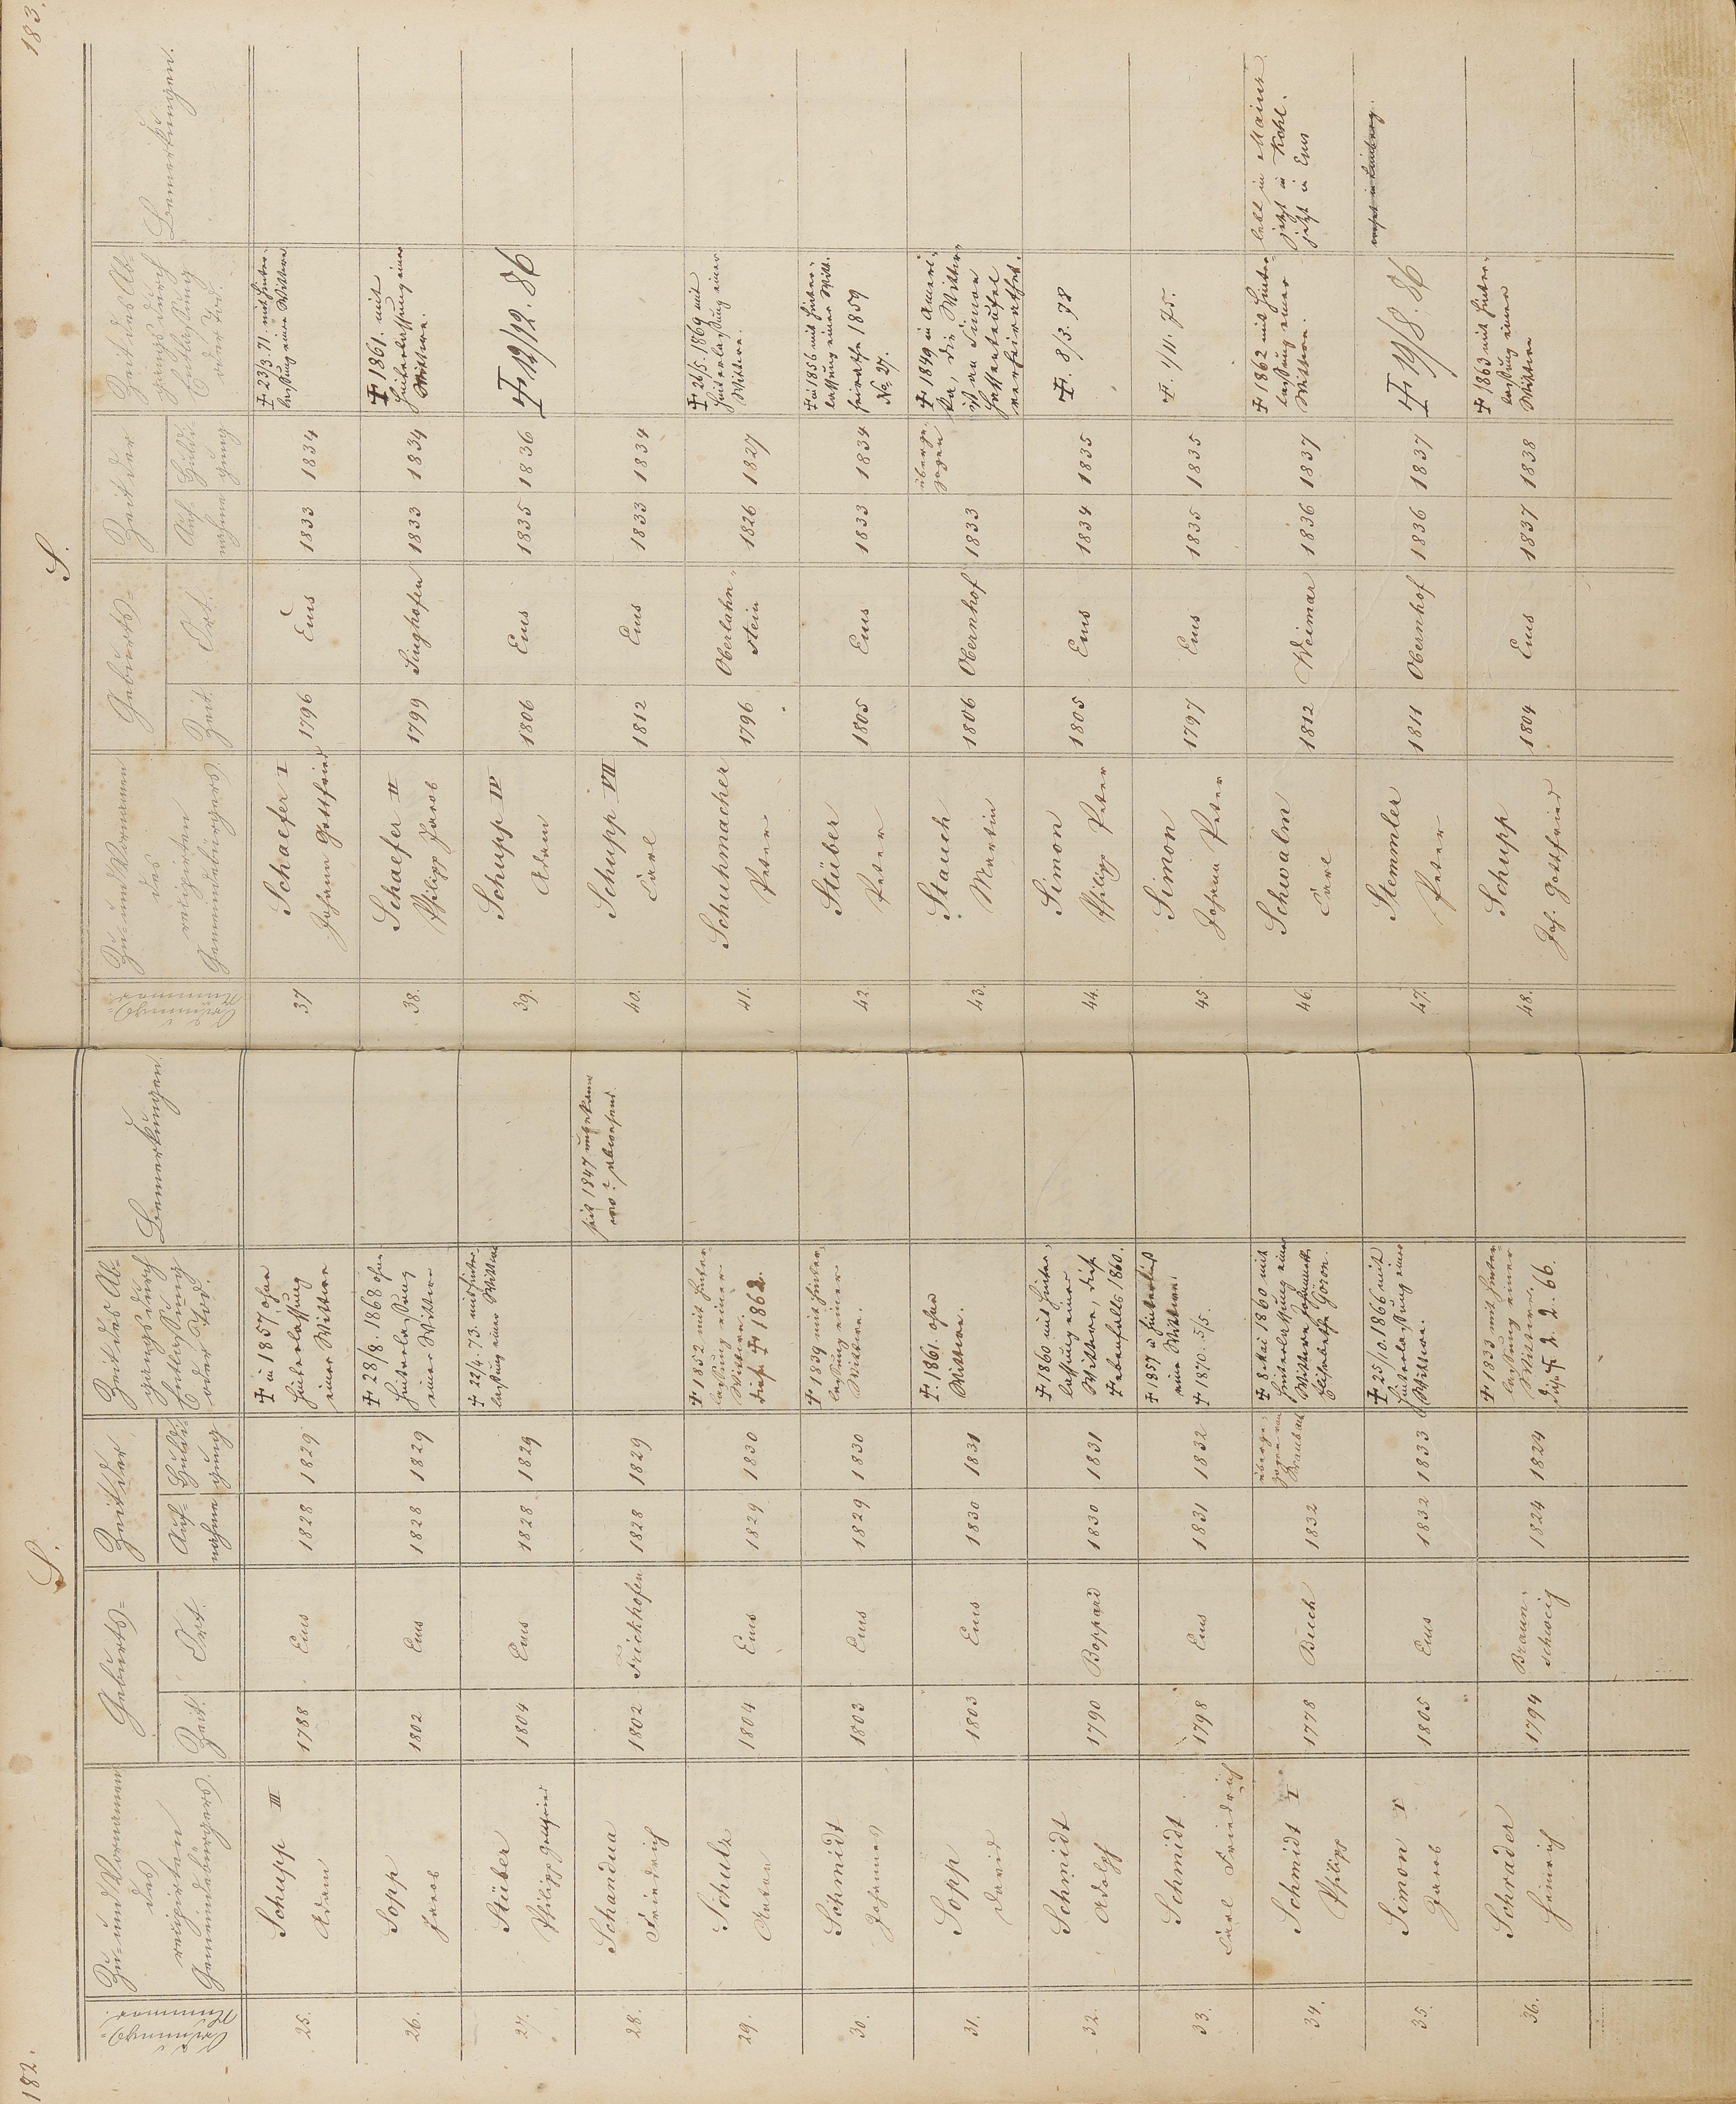 182.
S.
Ordnungs-
Nummer.
Zu- und Vornamen
des
recipirten
Gemeindebürgers.
Geburts-
Zeit.
Ort.
Zeit der
Auf-
nahme
Huldi-
gung
Zeit des Ab-
gangs durch
Entlassung
oder Tod.
Bemerkungen.
25.
Schupp III
Adam
1788
Ems
1828
1829
† in 1857 ohne
Hinterlassung
einer Wittwe
26.
Sopp
Jacob
1802
Ems
1828
1829
† 28/8. 1868 ohne
Hinterlassung
einer Wittwe
27.
Stüber
Philipp Gottfried
1804
Ems
1828
1829
† 22/4. 73. mit Hinter-
lassung einer Wittwe
28.
Schandua
Friedrich
1802
Frickhofen
1828
1829
seit 1847 unbekannt
wo? abwesend
29.
Schulz
Anton
1804
Ems
1829
1830
† 1852 mit Hinter-
lassung einer
Wittwe.
diese † 1862.
30.
Schmidt
Johannes
1803
Ems
1829
1830
† 1839 mit Hinter-
lassung einer
Wittwe.
31.
Sopp
David
1803
Ems
1830
1831
† 1861. ohne
Wittwe.
32.
Schmidt
Adolph
1790
Boppard
1830
1831
† 1860 mit Hinter-
lassung einer
Wittwe, diese
† ebenfalls 1860.
33.
Schmidt
Carl Friedrich
1798
Ems
1831
1832
† 1857 u hinterließ
eine Wittwe.
† 1870. 5/5.
34.
Schmidt I
Philipp
1778
Buch
1832
überge-
zogen von
Braubach
† 8 Mai 1860 mit
Hinterlassung einer
Wittwe
Elisabethe
35.
Simon I
Jacob
1805
Ems
1832
1833
† 25/10. 1866 mit
Hinterlassung einer
Wittwe.
36.
Schrader
Heinrich
1794
Braun-
schweig
1824
1824
† 1833 mit Hinter-
lassung einer
Wittwe.
diese † 2. 2. 66.
183.
S.
Ordnungs-
Nummer
Zu- und Vornamen
des
recipirten
Gemeindebürgers.
Geburts-
Zeit.
Ort.
Zeit der
Auf-
nahme
Huldi-
gung
Zeit des Ab-
gangs durch
Entlassung
oder Tod.
Bemerkungen.
37
Schaefer I
Johann Gottfried
1796
Ems
1833
1834
† 23/3. 71. mit Hinter-
lassung einer Wittwe
38.
Schaefer II
Philipp Jacob
1799
Singhofen
1833
1834
† 1861. mit
Hinterlassung einer
Wittwe.
39.
Schupp IV
Adam
1806
Ems
1835
1836
† 12/12. 86
40.
Schupp VII
Carl
1812
Ems
1833
1834
41.
Schuhmacher
Peter
1796
Oberlahn-
stein
1826
1827
† 26/5. 1869 mit
Hinterlassung einer
Wittwe.
42.
Stüber
Peter
1805
Ems
1833
1834
† in 1856 mit Hinter-
lassung einer Wittw.
heirathe 1859
No. 27.
43.
Stauch
Martin
1806
Obernhof
1833
überge-
zogen
† 1849 in Ameri-
ka, die Wittwe
ist an Simon
verheirathet.
44.
Simon
Philipp Peter
1805
Ems
1834
1835
†. 8/3. 78
45
Simon
Johann Peter
1797
Ems
1835
1835
†. 1/11. 75.
46.
Schwalm
Carl
1812
Weimar
1836
1837
† 1862 mit Hinter-
lassung einer
Wittwe.
lebt in Mainz
jetzt in Kehl.
jetzt in Ems
47.
Stemmler
Peter
1811
Obernhof
1836
1837
† 19/8. 86
wohnt in Limburg.
48.
Schupp
Joh. Gottfried
1804
Ems
1837
1838
† 1863 mit Hinter-
lassung einer
Wittwe